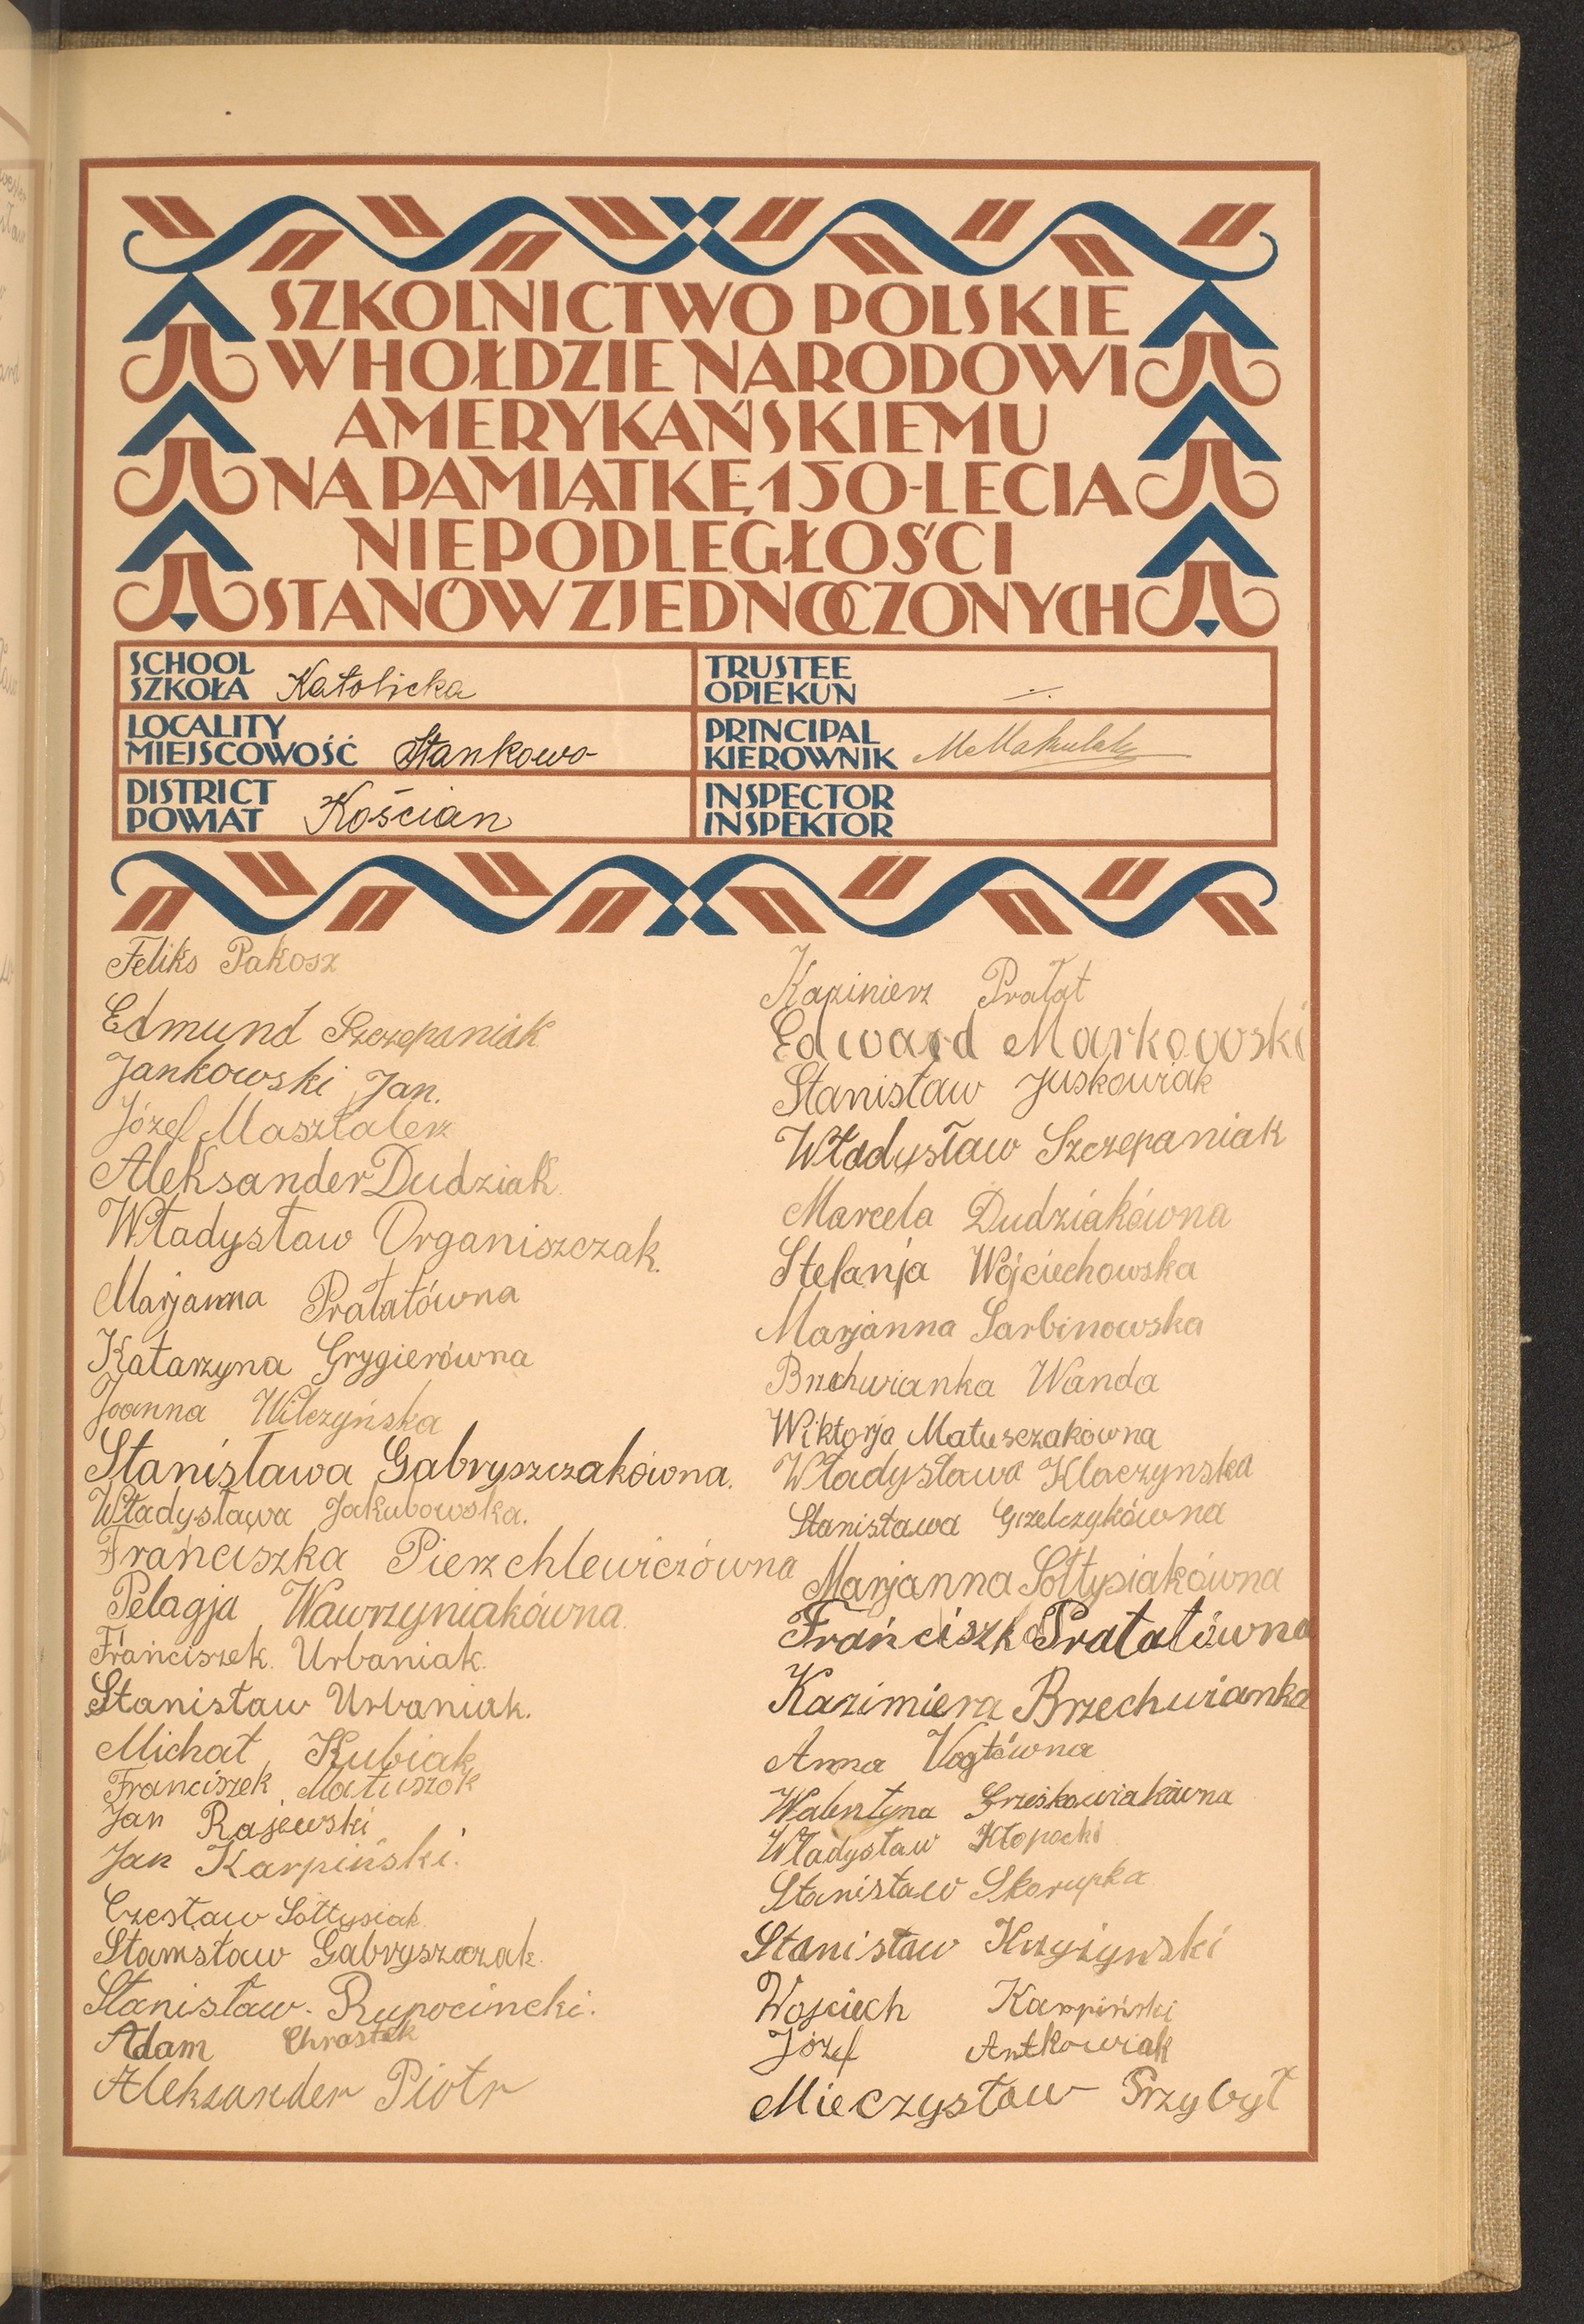 SZKOLNICTWO POLSKIE
W HOŁDZIE NARODOWI
AMERYKAŃSKIEMU
NA PAMIĄTKĘ 150-LECIA
NIEPODLEGŁOŚCI
STANÓW ZJEDNOCZONYCH
SCHOOL
SZKOŁA Katolicka
TRUSTEE
OPIEKUN
LOCALITY
MIEJSCOWOŚĆ Stankowo
PRINCIPAL
KIEROWNIK
DISTRICT
POWIAT Kościan
INSPECTOR
INSPEKTOR
Feliks Pakosz
Edmund Szczepaniak
Jankowski Jan.
Józef Masztalerz
Aleksander Dudziak
Władysław Organiszczak.
Marjanna Prałatówna
Katarzyna Grygierówna
Joanna Wilczyńska
Stanisława Gabryszczakówna.
Władysława Jakubowska.
Franciszka Pierzchlewiczówna
Pelagja Wawrzyniakówna
Franciszek Urbaniak.
Stanisław Urbaniak.
Michał Kubiak
Franciszek Matuszok
Jan Rajewski
Jan Karpiński.
Czesław Sołtysiak
Stanisław Gabryszczak
Stanisław. Rupocincki.
Adam Chrostek
Aleksander Piotr
Kazinierz Prałat
Edward Markowski
Stanisław Juskowiak
Władysław Szczepaniak
Marcela Dudziakówna
Stefanja Wójciechowska
Marjanna Sarbinowska
Brzechwianka Wanda
Wiktorja Matusczakówna
Władysława Klaczynska
Stanisława Grzelczykówna
Marjanna Sołtysiakówna
Franciszka Prałatówna
Kazimiera Brzechwianka
Anna Vogtówna
Walentyna Grzeskowiakówna
Władysław Kłopocki
Stanisław Skorupka
Stanisław Krzyżynski
Wojciech Karpiński
Józef Antkowiak
Mieczysław Przybył